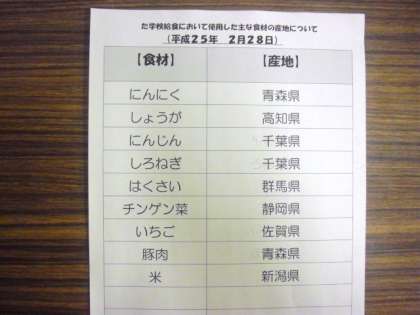 た学校給食において使用した主な食材の産地について
（平成25年　2月28日）
【食材】　【産地】
にんにく　青森県
しょうが　高知県
にんじん　千葉県
しろねぎ　千葉県
はくさい　群馬県
チンゲン菜　静岡県
いちご　佐賀県
豚肉　青森県
米　新潟県